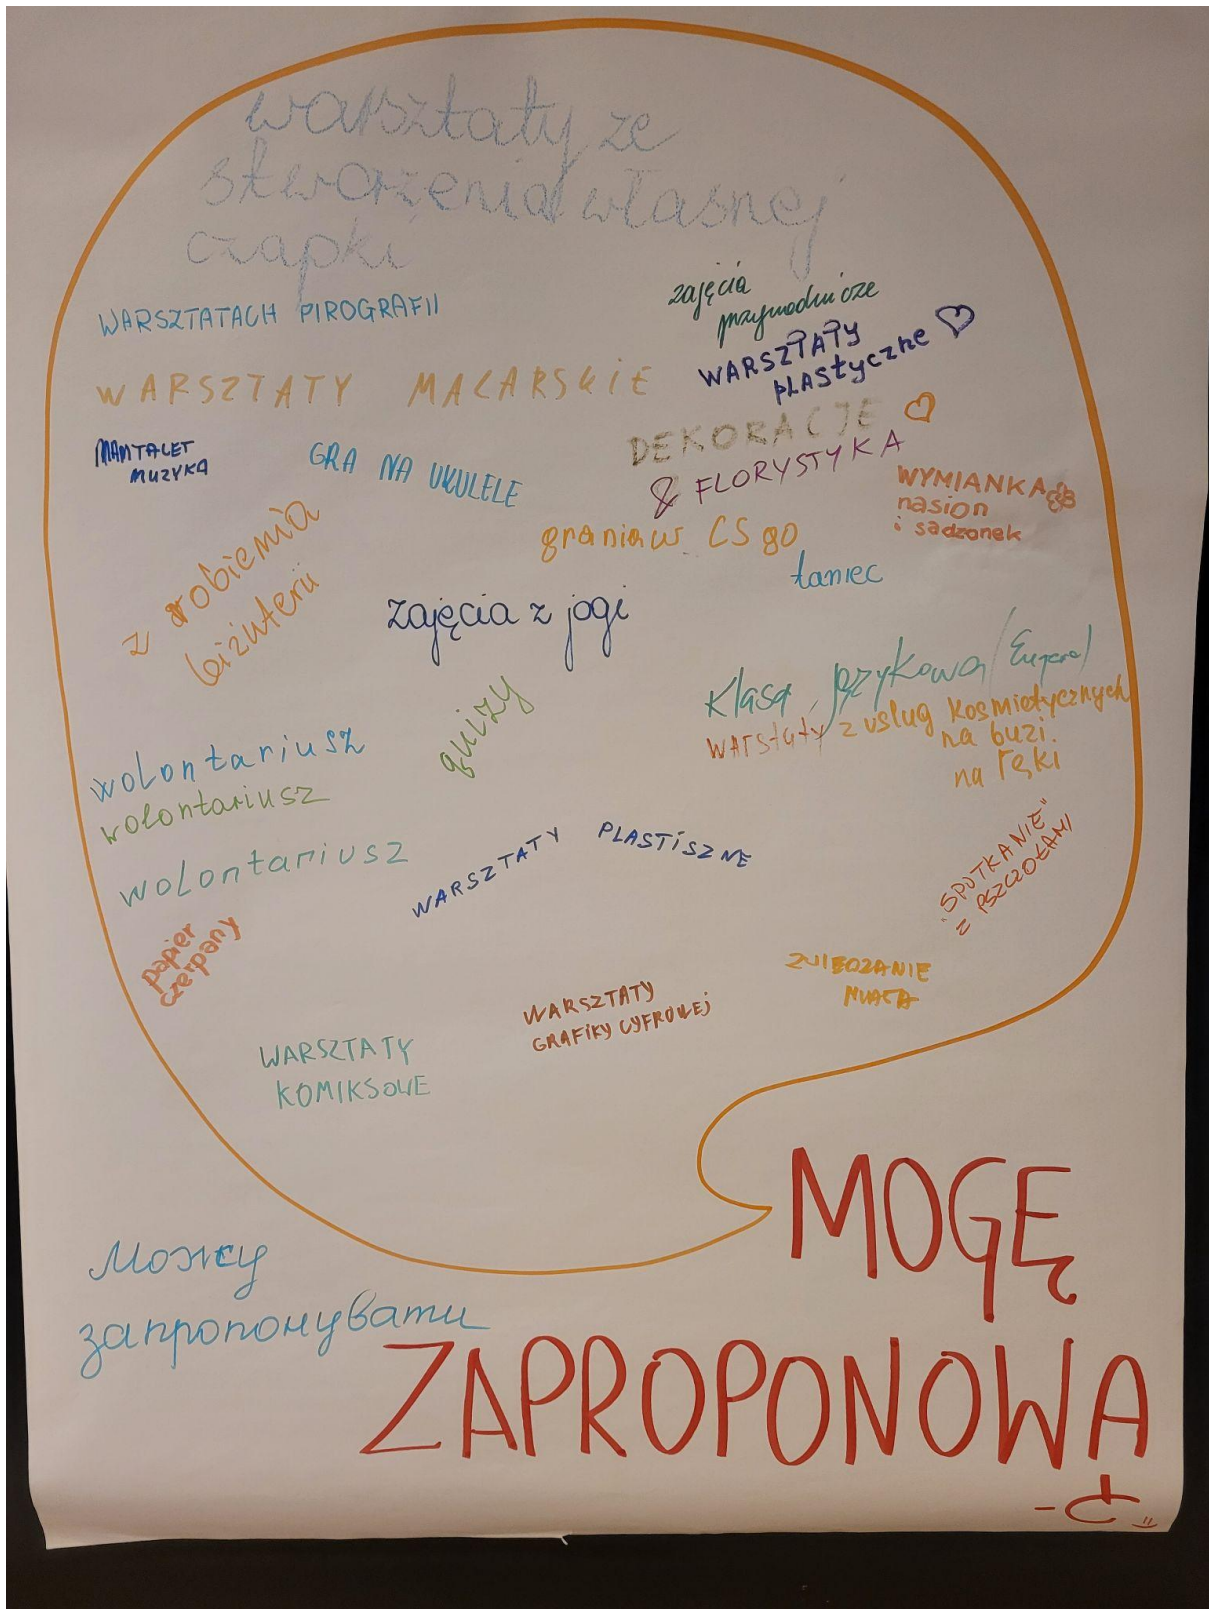 warsztaty ze
stworzenia własnej
czapki
WARSZTATACH PIROGRAFII
zajęcia
przyrodnicze
WARSZTATY
PLAStyczne
WARSZTATY MALARSKIE
DEKORACJE
& FLORYSTYKA
MUZYKA
GRA NA UKULELE
WYMIANKA
nasion
i sadzonek
grania w CS go
taniec
z robiemia
biżuterii
zajęcia z jogi
Klasa językowa
warstaty z usług kosmietycznych
na buzi.
na ręki
quizy
wolontariusz
wolontariusz
wolontariusz
WARSZTATY PLASTiSZNE
"SPOTKANIE"
Z PSZCZOŁAMI
papier
czerpany
ZWIEDZANIE
MIASTA
WARSZTATY
GRAFIKY CYFROWEJ
WARSZTATY
KOMIKSOWE
MOGĘ
ZAPROPONOWA
-Ć
Можу
запропонувати